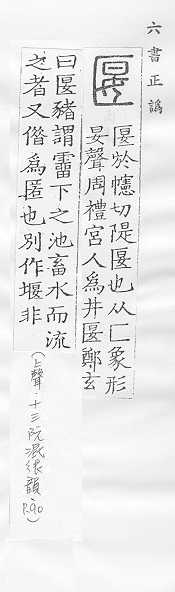 六書正譌
匽
匽於幰切隄匽也从匚象形
妟聲周禮宮人爲井匽鄭玄
曰匽豬謂霤下之池畜水而流
之者又偺爲匿也別作堰非
(上聲·十三阮混很韻·P.90)